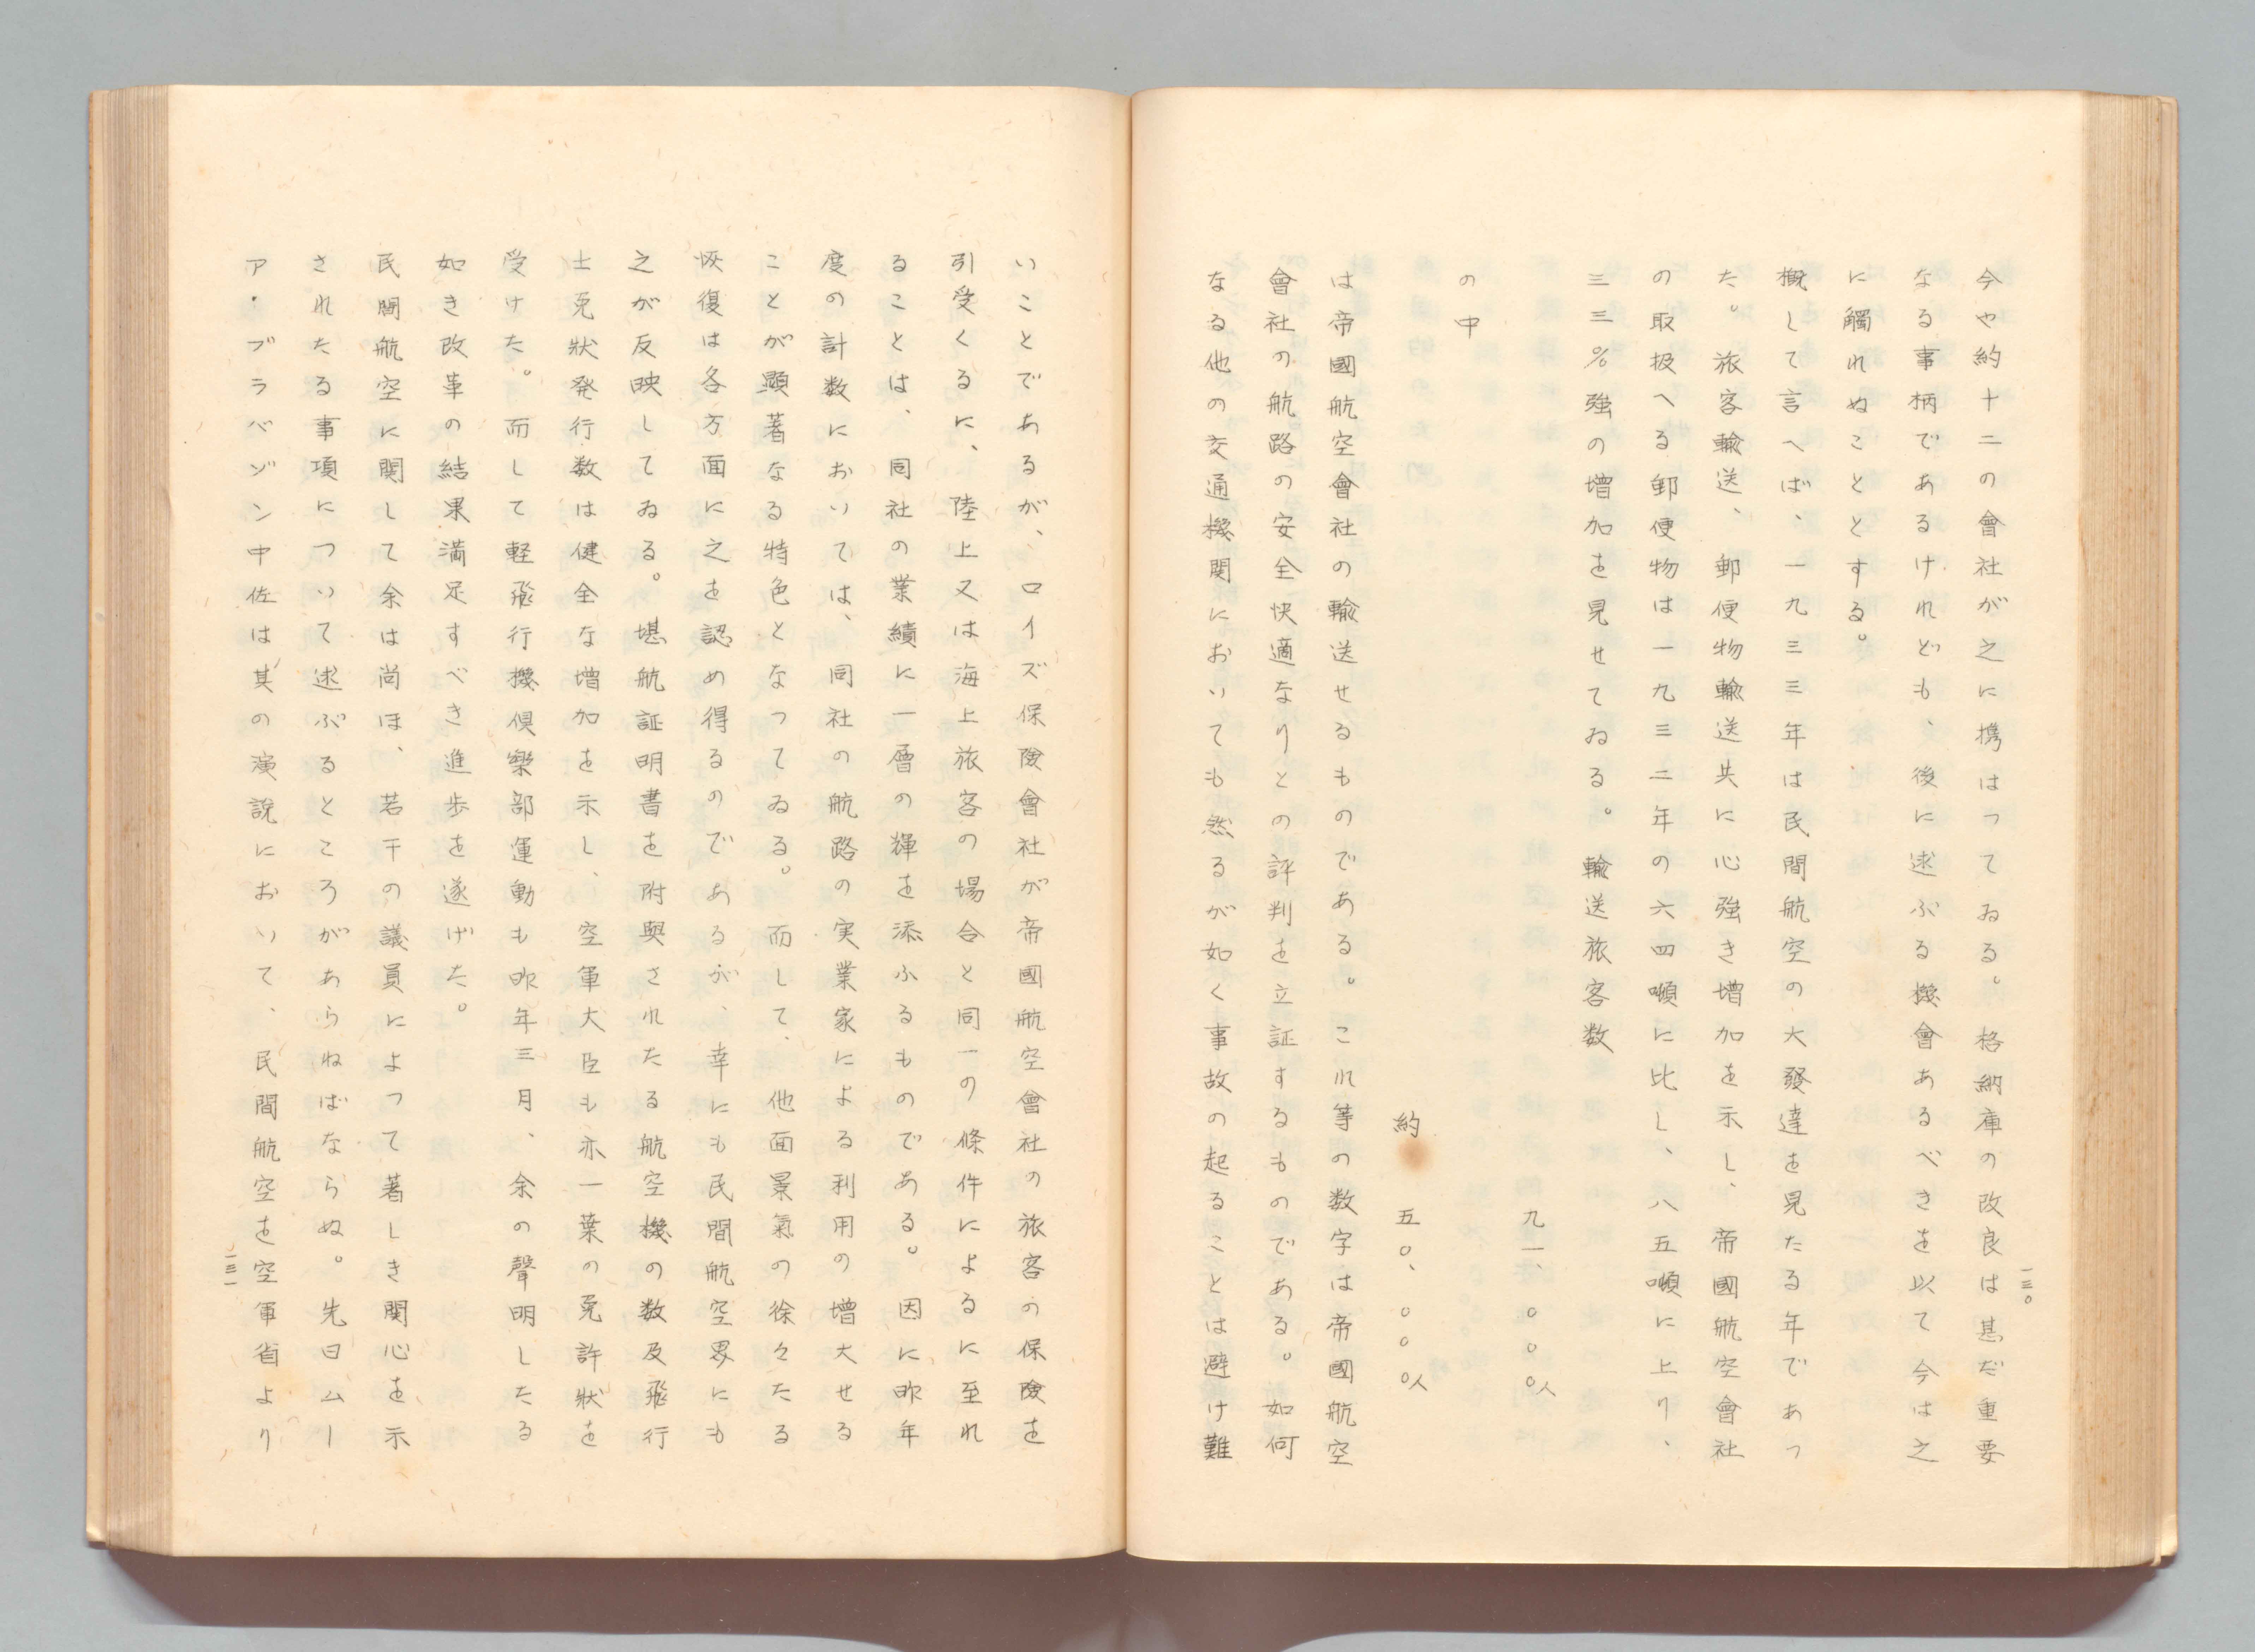 一三〇
今や約十二の會社が之に携はつてゐる。格納庫の改良は甚だ重要
なる事柄であるけれども、後に述ぶる機會あるべきを以て今は之
に觸れぬこととする。
概して言へば、一九三三年は民間航空の大發達を見たる年であつ
た。旅客輸送、郵便物輸送共に心強き増加を示し、帝國航空會社
の取扱へる郵便物は一九三二年の六四噸に比し、八五噸に上り、
三三%強の増加を見せてゐる。輸送旅客数
九一、〇〇〇人
の中
約 五〇、〇〇〇人
は帝國航空會社の輸送せるものである。これ等の数字は帝國航空
會社の航路の安全快適なりとの評判を立証するものである。如何
なる他の交通機関においても然るが如く事故の起ることは避け難
いことであるが、ロイズ保険會社が帝國航空會社の旅客の保険を
引受くるに、陸上又は海上旅客の場合と同一の條件によるに至れ
ることは、同社の業績に一層の輝を添ふるものである。因に昨年
度の計数においては、同社の航路の実業家による利用の増大せる
ことが顕著なる特色となつてゐる。而して、他面景氣の徐々たる
恢復は各方面に之を認め得るのであるが、幸にも民間航空界にも
之が反映してゐる。堪航証明書を附與されたる航空機の数及飛行
士免狀発行数は健全な増加を示し、空軍大臣も亦一葉の免許狀を
受けた。而して軽飛行機倶樂部運動も昨年三月、余の聲明したる
如き改革の結果満足すべき進歩を遂げた。
民間航空に関して余は尚ほ、若干の議員によつて著しき関心を示
されたる事項について述ぶるところがあらねばならぬ。先日ムー
ア・ブラバゾン中佐は其の演説において、民間航空を空軍省より
一三一